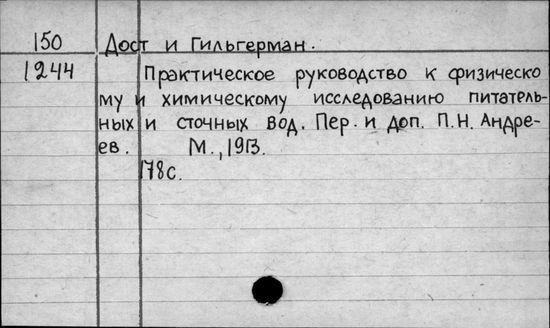 150 Дост и Гильгерман.
1244 Практическое руководство к физическо
му и химическому исследованию питатель-
ных и сточных вод. Пер. и доп. П.Н. Андре-
ев. М., 1913.
178с.